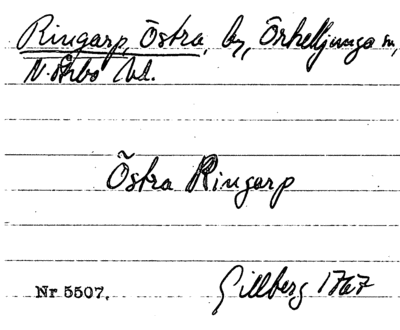 Ringarp, Östra, by, Örkelljunga sn,
N. Åsbo hd.
Östra Ringarp
Nr 5507.
Gillberg 1767